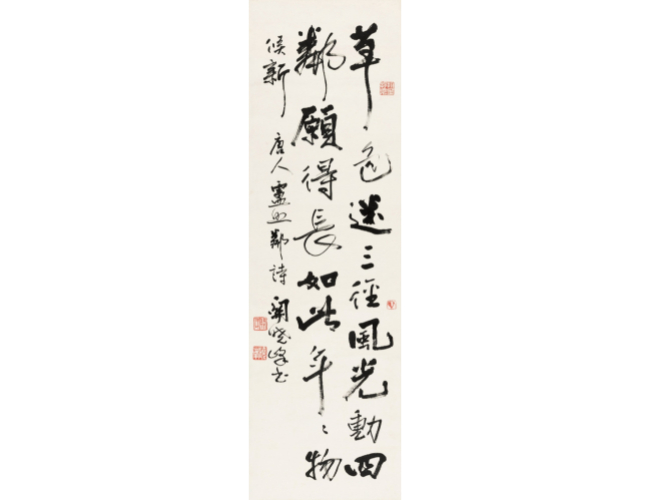 草色迷三徑風光動四
鄰願得長如此年々物
候新 唐人盧照鄰詩 關曉峰書